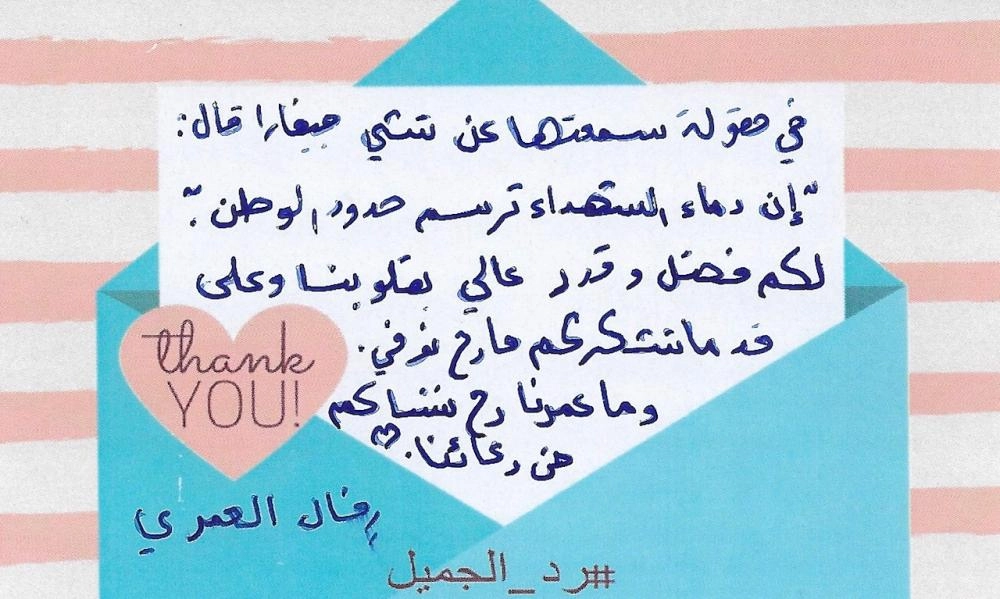 في مقولة سمعتها عن تشي جيفارا قال:
"إن دماء الشهداء ترسم حدود الوطن".
لكم فضل وقدر عالي بقلوبنا وعلى
قد مانتشكركم مارح نوفي.
وما عمرنا رح ننساكم
من دعائنا.
thank
YOU!
العمري
#رد_الجميل